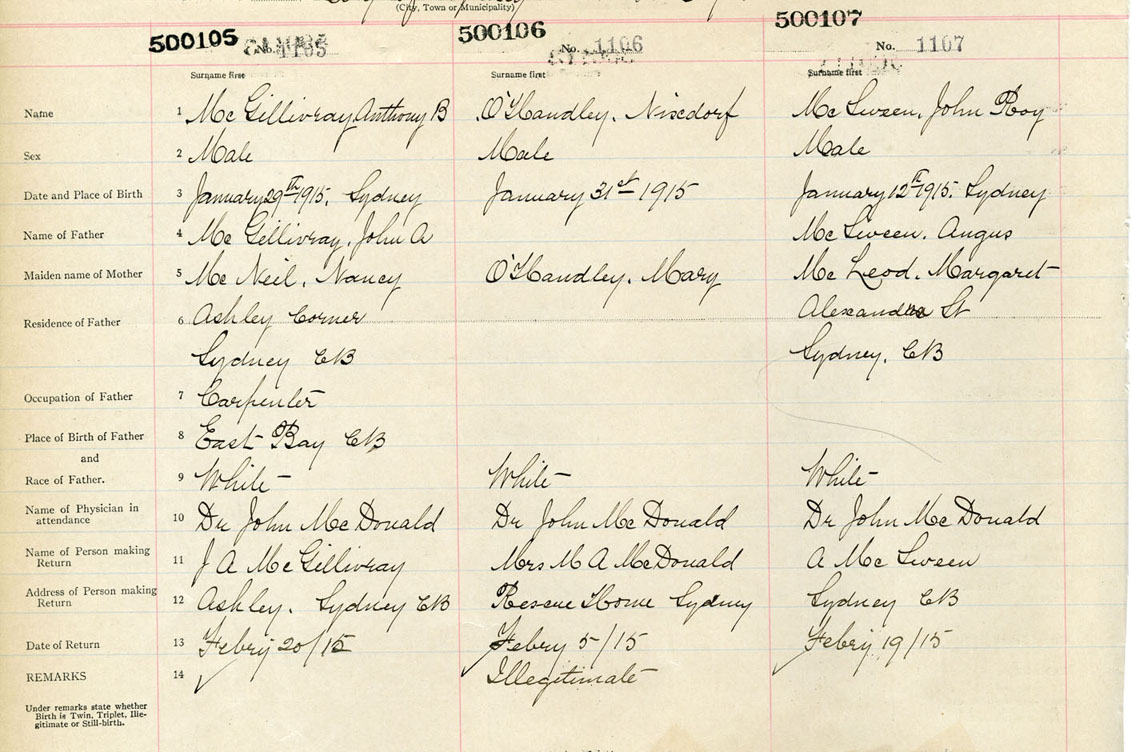 (City, Town or Municipality)
500105 No. 1105 500106 No. 1106 500107 No. 1107
Surname first Surname first Surname first
Name 1 McGillivray Anthony B O'Handley, McSween, John Roy
Sex 2 Male Male Male
Date and Place of Birth 3 January 29th 1915, Sydney January 31st 1915 January 12th 1915. Sydney
Name of Father 4 McGillivray, John A McSween. Angus
Maiden name of Mother 5 McNeil, Nancy O'Handley, Mary McLeod. Margaret
Residence of Father 6 Ashley Corner Alexandra St
Sydney CB Sydney, CB
Occupation of Father 7 Carpenter
Place of Birth of Father 8 East Bay CB
and
Race of Father. 9 White White White
Name of Physician in attendance 10 Dr John McDonald Dr John McDonald Dr John McDonald
Name of Person making Return 11 J A McGillivray Mrs M A McDonald A McSween
Address of Person making Return 12 Ashley. Sydney CB Rescue Home Sydney Sydney CB
Date of Return 13 Febry 20/15 Febry 5/15 Febry 19/15
REMARKS 14 Illegitimate
Under remarks state whether
Birth is Twin, Triplet, Ille-
gitimate or Still-birth.